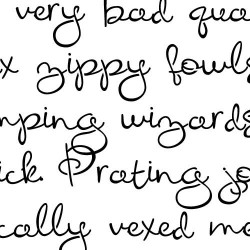 very bad qua
x zippy fowls
mping wizards
ick. Prating jo
ically vexed m